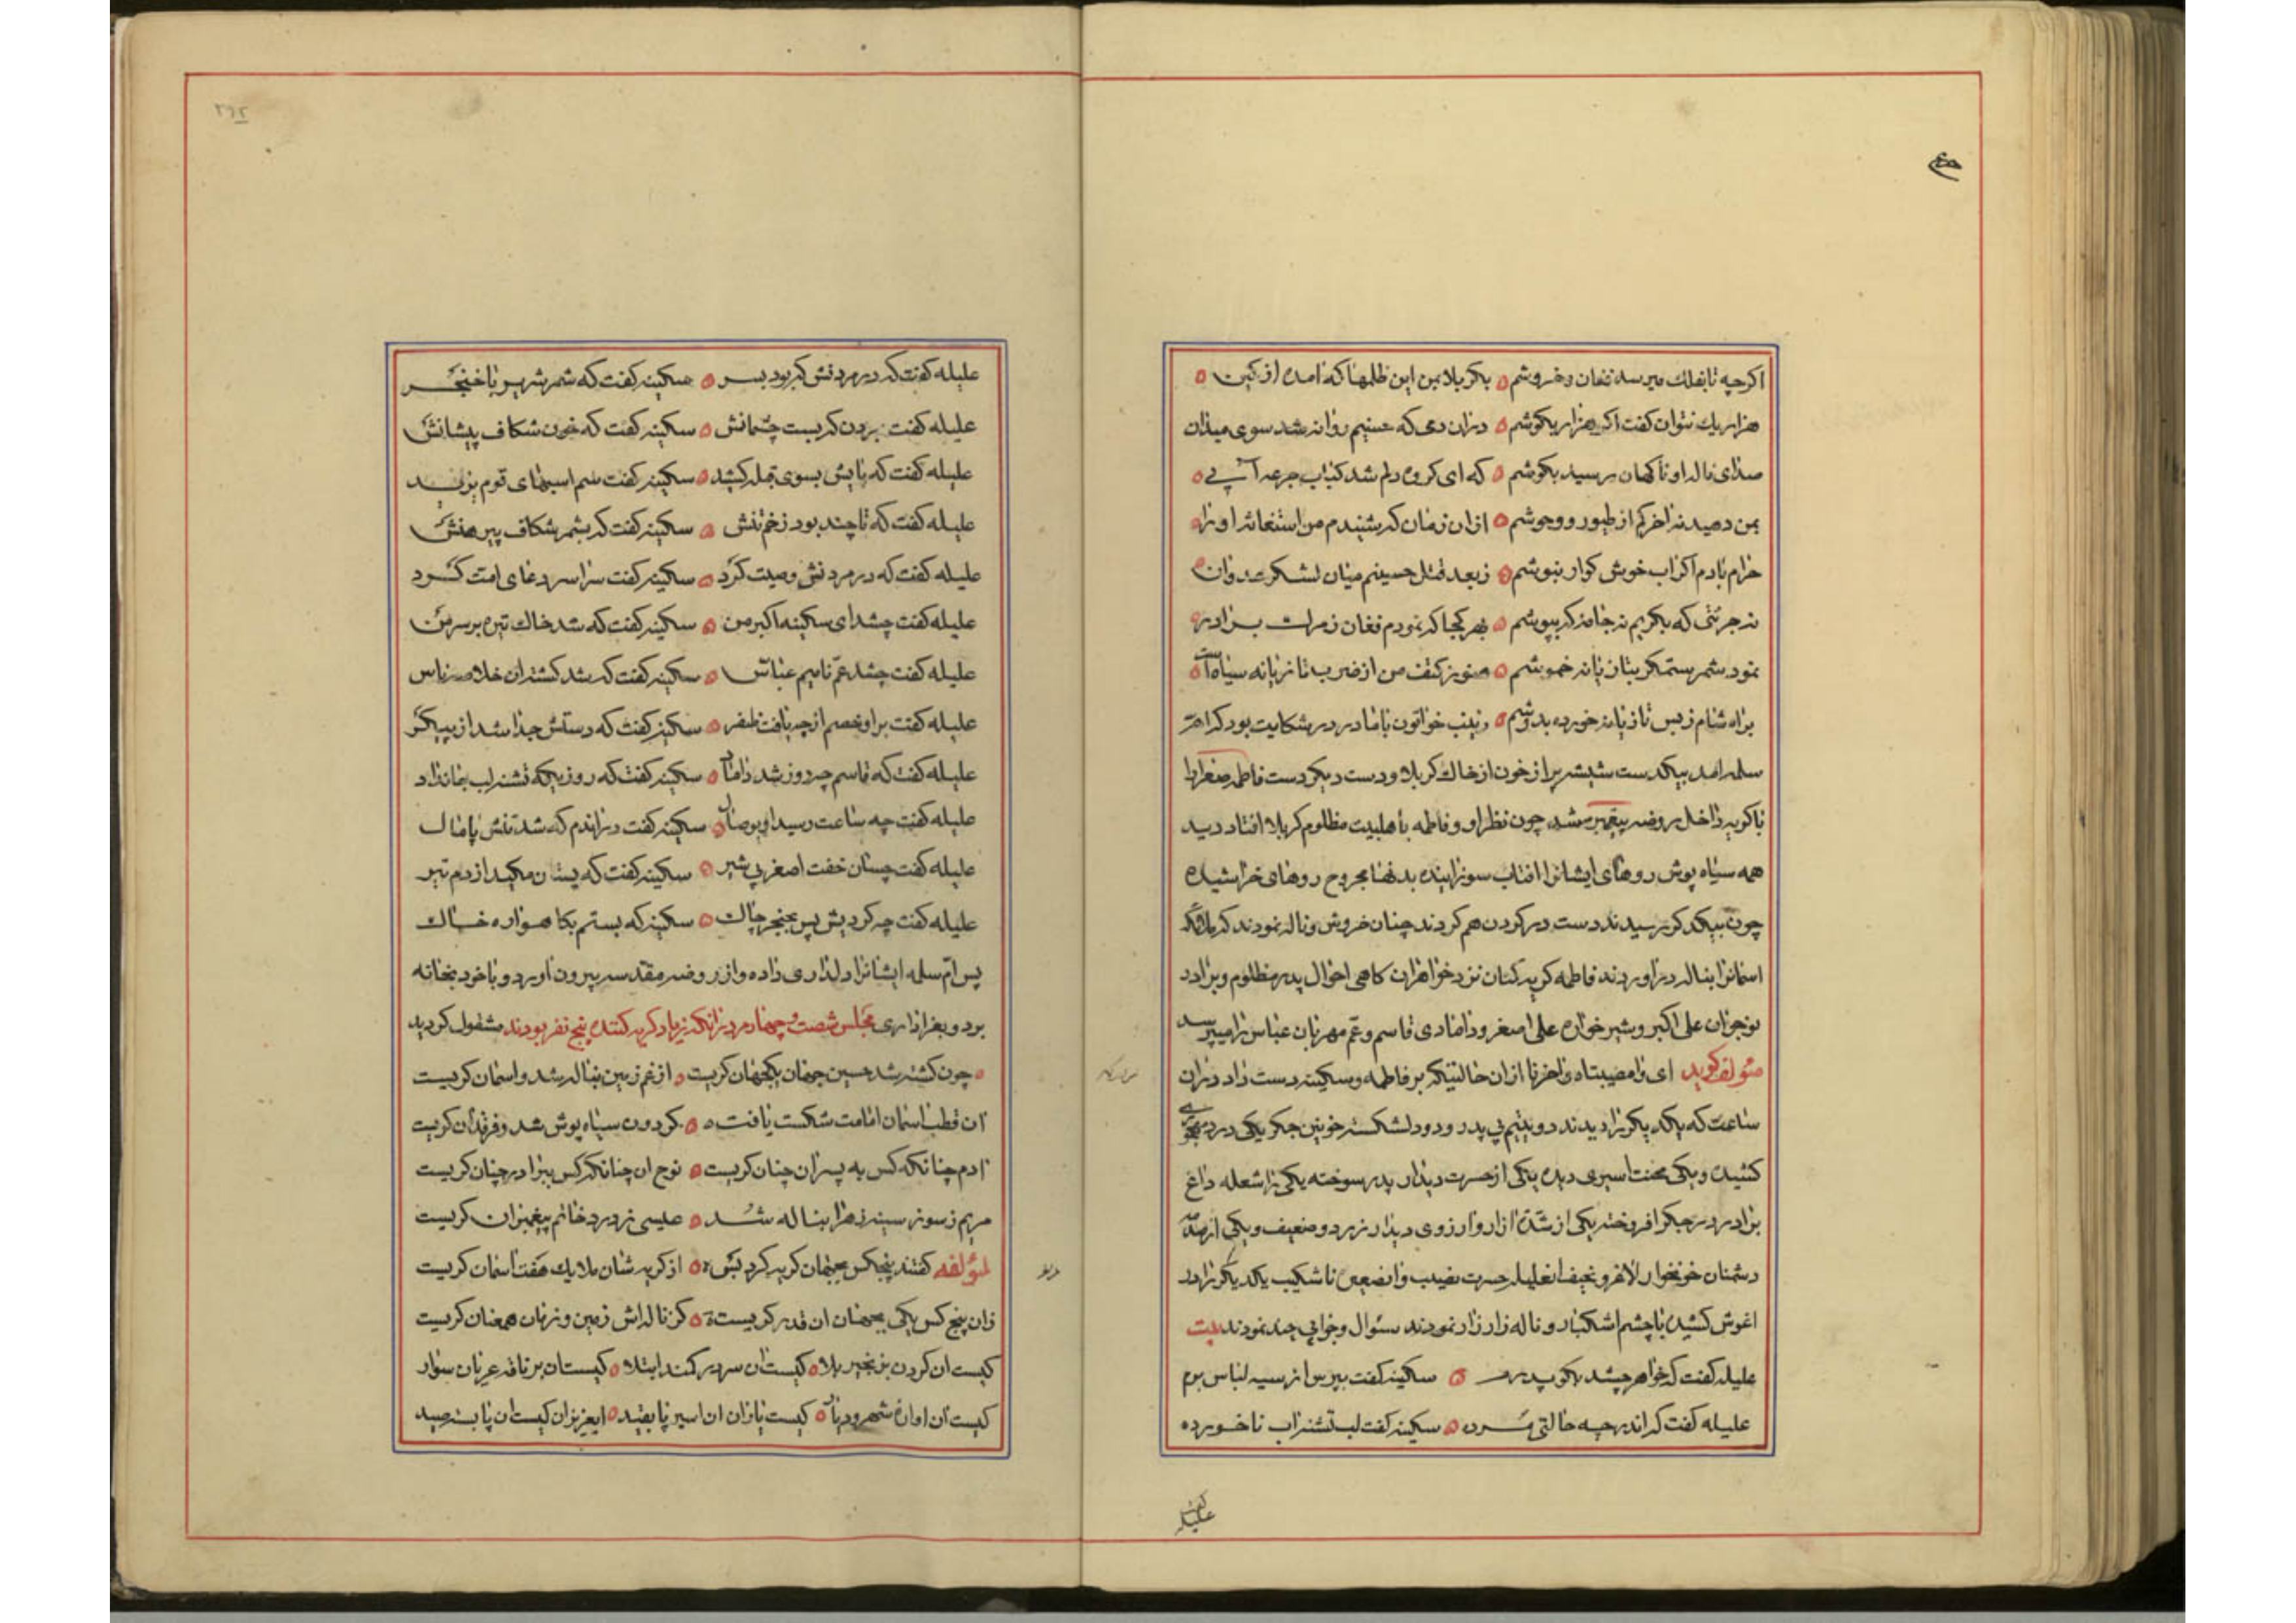 اکرچه تا بفلك میرسد فغان و خروشم ۵ بکربلا بمن این ظلمها که آمده از کین ۵
هزار یك نتوان کفت اکر هزار بکوشم ۵ دران دمی که حسینم روانه شد سوی میدان
صدای ناله او ناکهان رسید بکوشم ۵ که ای کروه دلم شد کباب جرعه آبی ۵
بمن دهید نه اخر کم از طیور و وحوشم ۵ از ان زمان که شنیدم من استغاثه او را ۵
حرام بادم اکر اب خوش کوار بنوشم ۵ ز بعد قتل حسینم میان لشکر عدوان ۵
نه جرئتی که بکریم نه جامه که بپوشم ۵ بهر کجا که نمودم فغان ز مرك برادر ۵
نمود شمر ستمکر بتازیانه خموشم ۵ هنوز کتف من از ضرب تازیانه سیاه است ۵
براه شام ز بس تازیانه خورده بدوشم ۵ زینب خواتون با مادر در شکایت بود که ام
سلمه امد بیکدست شیشه پر از خون از خاك کربلا و دست دیکر دست فاطمه صغرا با
ناکوبه داخل روضه پیغمبر شد چون نظر او و فاطمه باهلبیت مظلوم کربلا افتاد دید
همه سیاه پوش روهای ایشانرا افتاب سوزانیده بدنها مجروح روهای خراشیده
چون بیکدکر رسیدند دست در کردن هم کردند چنان خروش و ناله نمودند که ملائکه
اسمانرا بناله دراوردند فاطمه کریه کنان نزد خواهران کاهی احوال پدر مظلوم و برادر
نوجوان علی اکبر و شیر خواره علی اصغر و دامادی قاسم و عم مهربان عباس را میپرسد
مؤلف کوید ای وامصیبتاه واحزنا از ان حالتیکه بر فاطمه و سکینه دست داد دران
ساعت که یکدیکر را دیدند دو یتیم بی پدر و دو دلشکسته خونین جکر یکی درد
کشیده و یکی محنت اسیری دیده یکی از حسرت دیدار پدر سوخته یکی را شعله داغ
برادر در جکر افروخته یکی از شدت ازار و ارزوی دیدار زرد و ضعیف و یکی از
دشمنان خونخوار لاغر و نحیف انعلیله حسرت نصیب و انضعیی ناشکیب یکدیکر را در
اغوش کشیده با چشم اشکبار و ناله زار زار نمودند سئوال و جوابی چند نمودند بیت
علیله کفت که خواهر چشد بکو پدرم ۵ سکینه کفت بپرس از سیه لباس برم
علیله کفت که اندر چه حالتی مرده ۵ سکینه کفت لب تشنه اب ناخورده
علیله کفت
علیله کفت که در مردنش که بود بسر ۵ سکینه کفت که شمر شریر با خنجر
علیله کفت بردن کریست چشمانش ۵ سکینه کفت که خون شکاف پیشانش
علیله کفت که پایش بسوی قبله کشید ۵ سکینه کفت سم اسبهای قوم یزید
علیله کفت که تا چند بود زخم تنش ۵ سکینه کفت که بشمر شکاف پیرهنش
علیله کفت که در مردنش وصیت کرد ۵ سکینه کفت سراسر دعای امت کرد
علیله کفت چشد ای سکینه اکبر من ۵ سکینه کفت که شد خاك تیره بر سر من
علیله کفت چشد عم نامیم عباس ۵ سکینه کفت که شد کشته ان خلاصه ناس
علیله کفت بر او خصم از چه یافت ظفر ۵ سکینه کفت که دستش جدا شد از پیکر
علیله کفت که قاسم چه روز شد داماد ۵ سکینه کفت که روزیکه تشنه لب جانداد
علیله کفت چه ساعت رسید او بوصال ۵ سکینه کفت دراندم که شد تنش پامال
علیله کفت چسان خفت اصغر بی شیر ۵ سکینه کفت که پستان مکید از دم تیر
علیله کفت چه کردیش پس بحنجر چاك ۵ سکینه که بستم بکاهواره خاك
پس ام سلمه ایشانرا دلداری داده و از روضه مقدسه بیرون اورد و با خود بخانه
برد و بعزاداری مجلس شصت و چهارم در انکه زیاد کریه کننده پنج نفر بودند مشغول کردید
۵ چون کشته شد حسین جهان یکجهان کریست ۵ از غم زمین بناله شد و اسمان کریست
ان قطب اسمان امامت شکست یافت ۵ کردون سیاه پوش شد و فرقدان کریست
ادم چنانکه کس به پسر ان چنان کریست ۵ نوح ان چنانکه کس ببرادر چنان کریست
مریم ز سوز سینه زهرا بناله شد ۵ عیسی ز درد خاتم پیغمبران کریست
لمؤلفه کفتند پنجکس بجهان کریه کرد بس ۵ از کریه شان ملایك هفت اسمان کریست
زان پنج کس یکی بجهان ان قدر کریست ۵ کز ناله اش زمین و زمان همعنان کریست
کیست ان کردن بزنجیر بلا ۵ کیست ان سر در کمند ابتلا ۵ کیست ان بر ناقه عریان سوار
کیست ان اواره شهر و دیار ۵ کیست یاران ان اسیر پا بقید ۵ ایعزیزان کیست ان پا بست صید